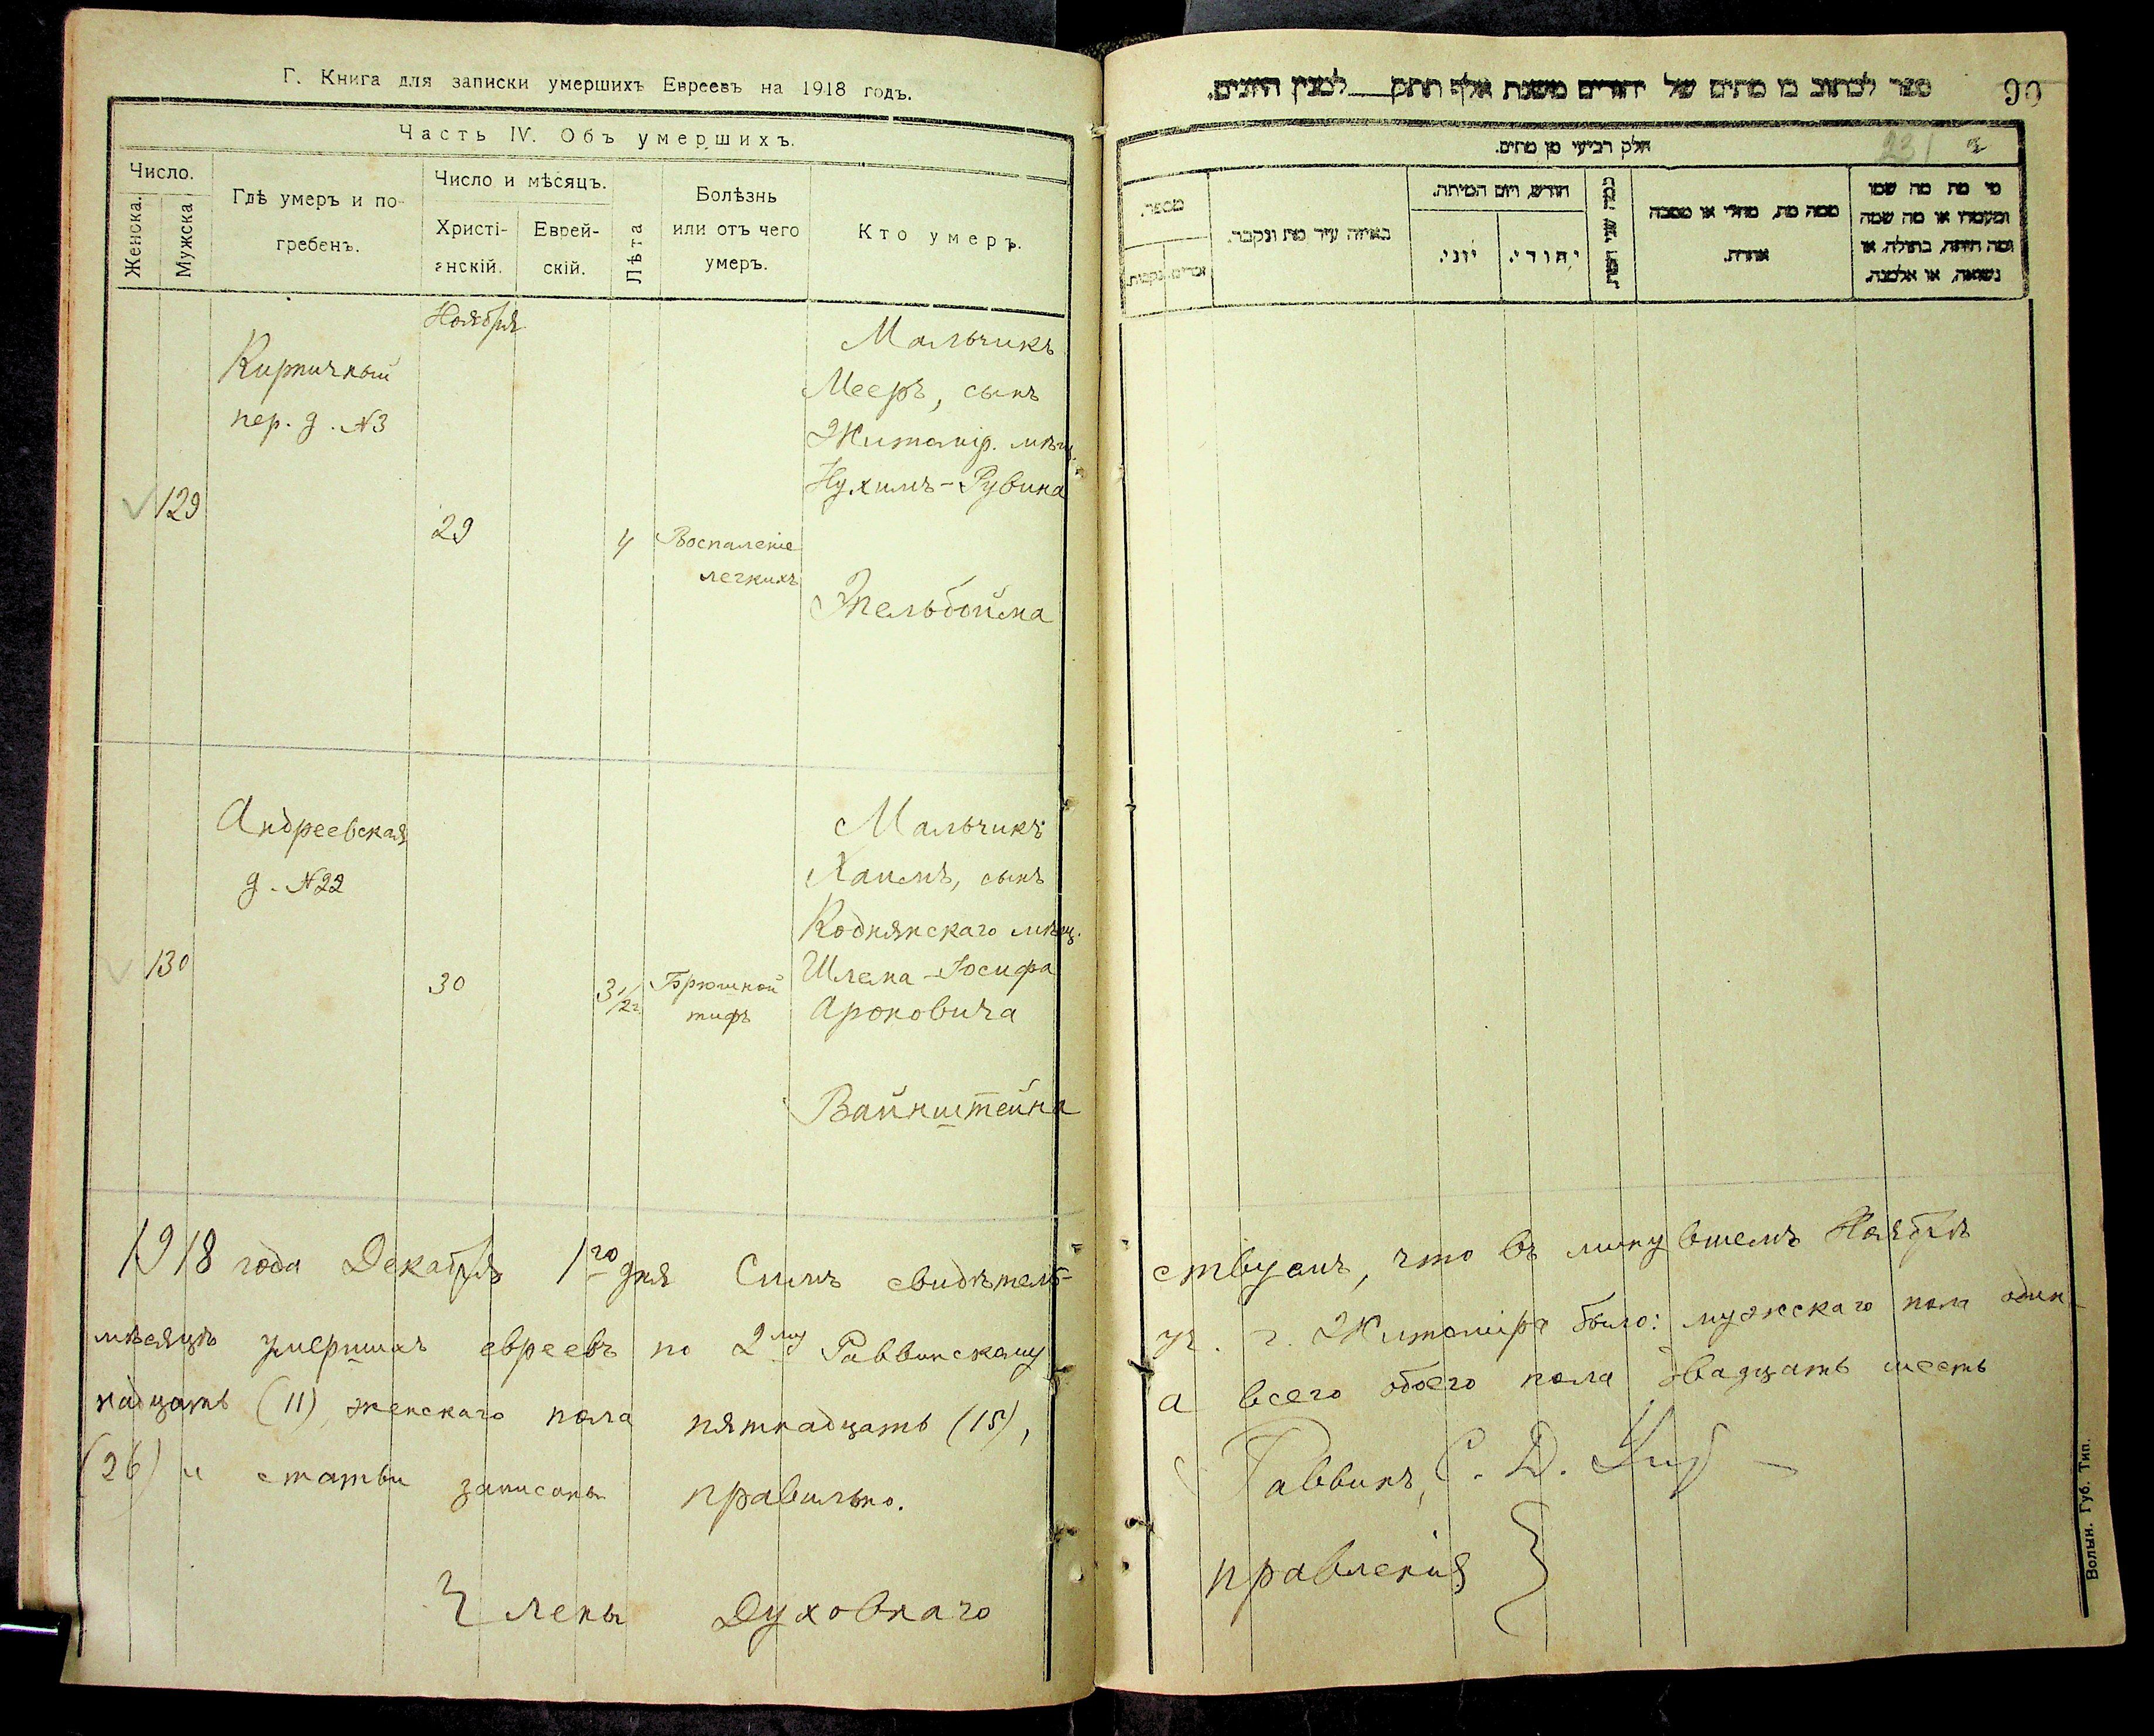 Г. Книга для записки умершихъ Евреевъ на 1918 годъ.
Часть IV. Объ умершихъ.
Число.
Женска.
Мужска
Гдѣ умеръ и по-
гребенъ.
Число и мѣсяцъ.
Христі-
анскій.
Еврей-
скій.
Лѣта
Болѣзнь
или отъ чего
умеръ.
Кто умеръ.
Ноября
129
Кирпичный
пер. д. №3
29
4
Воспаленіе
легкихъ
Мальчикъ
Мееръ, сынъ
Житомір. мѣщ.
Нухимъ-Рувина
Жельбойма
130
Андреевская
д. №22
30
3 1/2 г.
Брюшной
тифъ
Мальчикъ
Хаимъ, сынъ
Коднянскаго мѣщ.
Шлема-Іосифа
Ароновича
Вайнштейна
1918 года Декабря 1го дня Симъ свидѣтель-
мѣсяцѣ умершихъ евреевъ по 2му Раввинскому
надцать (11), женскаго пола пятнадцать (15),
(26) и статьи записаны правильно.
Члены Духовнаго
ספר לכתוב בו מתים של יהודים משנת אלף תתק למנין היונים.
90
231
חלק רביעי מן מתים.
מספר.
זכרים.
נקבות.
באיזה עיר מת ונקבר.
חודש, ויום המיתה.
יוני.
יהודי.
ממה מת, מחלי או מסבה
אחרת.
מי מת מה שמו
ומעמדו או מה שמה
ומה היתה, בתולה, או
נשואה, או אלמנה.
ствуемъ, что въ минувшемъ Ноябрѣ
уч. г. Житоміра было: мужскаго пола один-
а всего обоего пола двадцать шесть
Раввинъ, С. D.
правленія }
Волын. Губ. Тип.